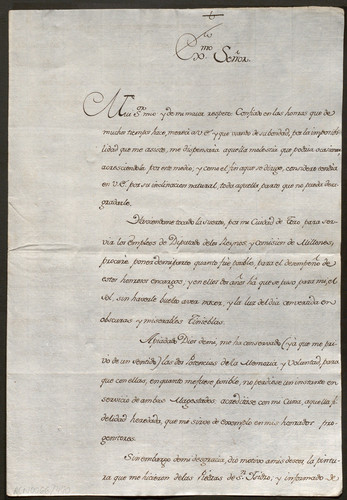 Exmo. Señor.
Mui Sr. mio y de mi maior respeto: Confiado en las honras que de
muchos tiempos hace, merecí a V.E. y que usando de su bondad, por la imposibi-
lidad que me asiste, me dispensará aquella molestia que podria ocasionar,
por este medio, y como el fin a que se dirige, considero tendrá
en V.E. por su inclinacion natural, toda aquella parte que no pueda desa-
gradarle.
Haviendome tocado la suerte, por mi Ciudad de Toro para ser-
vir los empleos de Diputado de los Reynos, y Comision de Millones,
procuré poner de mi parte quanto fue posible, para el desempeño de
estos honrosos encargos; y en el año que se puso para mi, el
Sol, sin haverle buelto a ver nacer, y la luz del dia convertida en
obscuras y miserables Tinieblas.
Apiadado Dios de mi, me ha conservado (ya que me pri-
vó de un sentido) las dos Potencias de la Memoria, y Voluntad, para
que con ellas, en quanto me fuese posible, no perdiese un instante en
servicio de ambas Magestades, acreditase con mi Cuna, aquella fi-
delidad heredada, que me sirve de exemplo en mis honrados pro-
genitores.
Sin embargo de mi desgracia, dio motivo a mis deseos la pintu-
ra que me hicieron de las Piedras de Sn. Isidro, y informado de